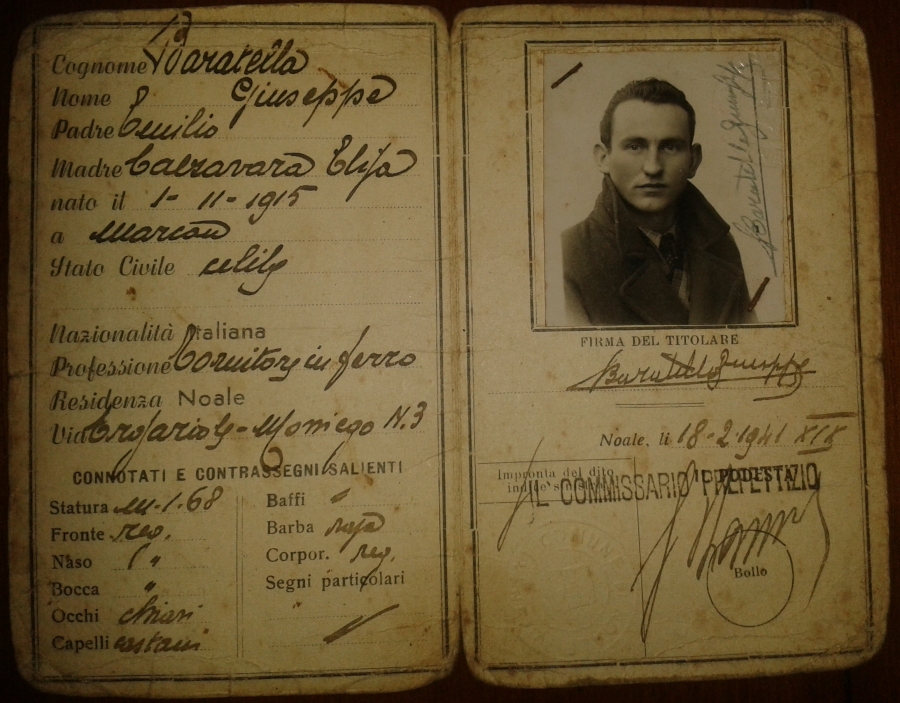 Cognome Baratella
Nome Giuseppe
Padre Emilio
Madre Calzavara Elisa
nato il 1-11-1915
a Marcon
Stato Civile celibe
Nazionalità Italiana
Professione Tornitore in ferro
Residenza Noale
Via - Moniego N. 3
CONNOTATI E CONTRASSEGNI SALIENTI
Statura m. 1.68
Fronte reg.
Naso "
Bocca "
Occhi chiari
Capelli castani
Baffi "
Barba rasa
Corpor. reg.
Segni particolari
Baratella Giuseppe
FIRMA DEL TITOLARE
Baratella Giuseppe
Noale, li 18-2-1941 XIX
Impronta del dito
IL PODESTÀ
IL COMMISSARIO PREFETTIZIO
Bollo